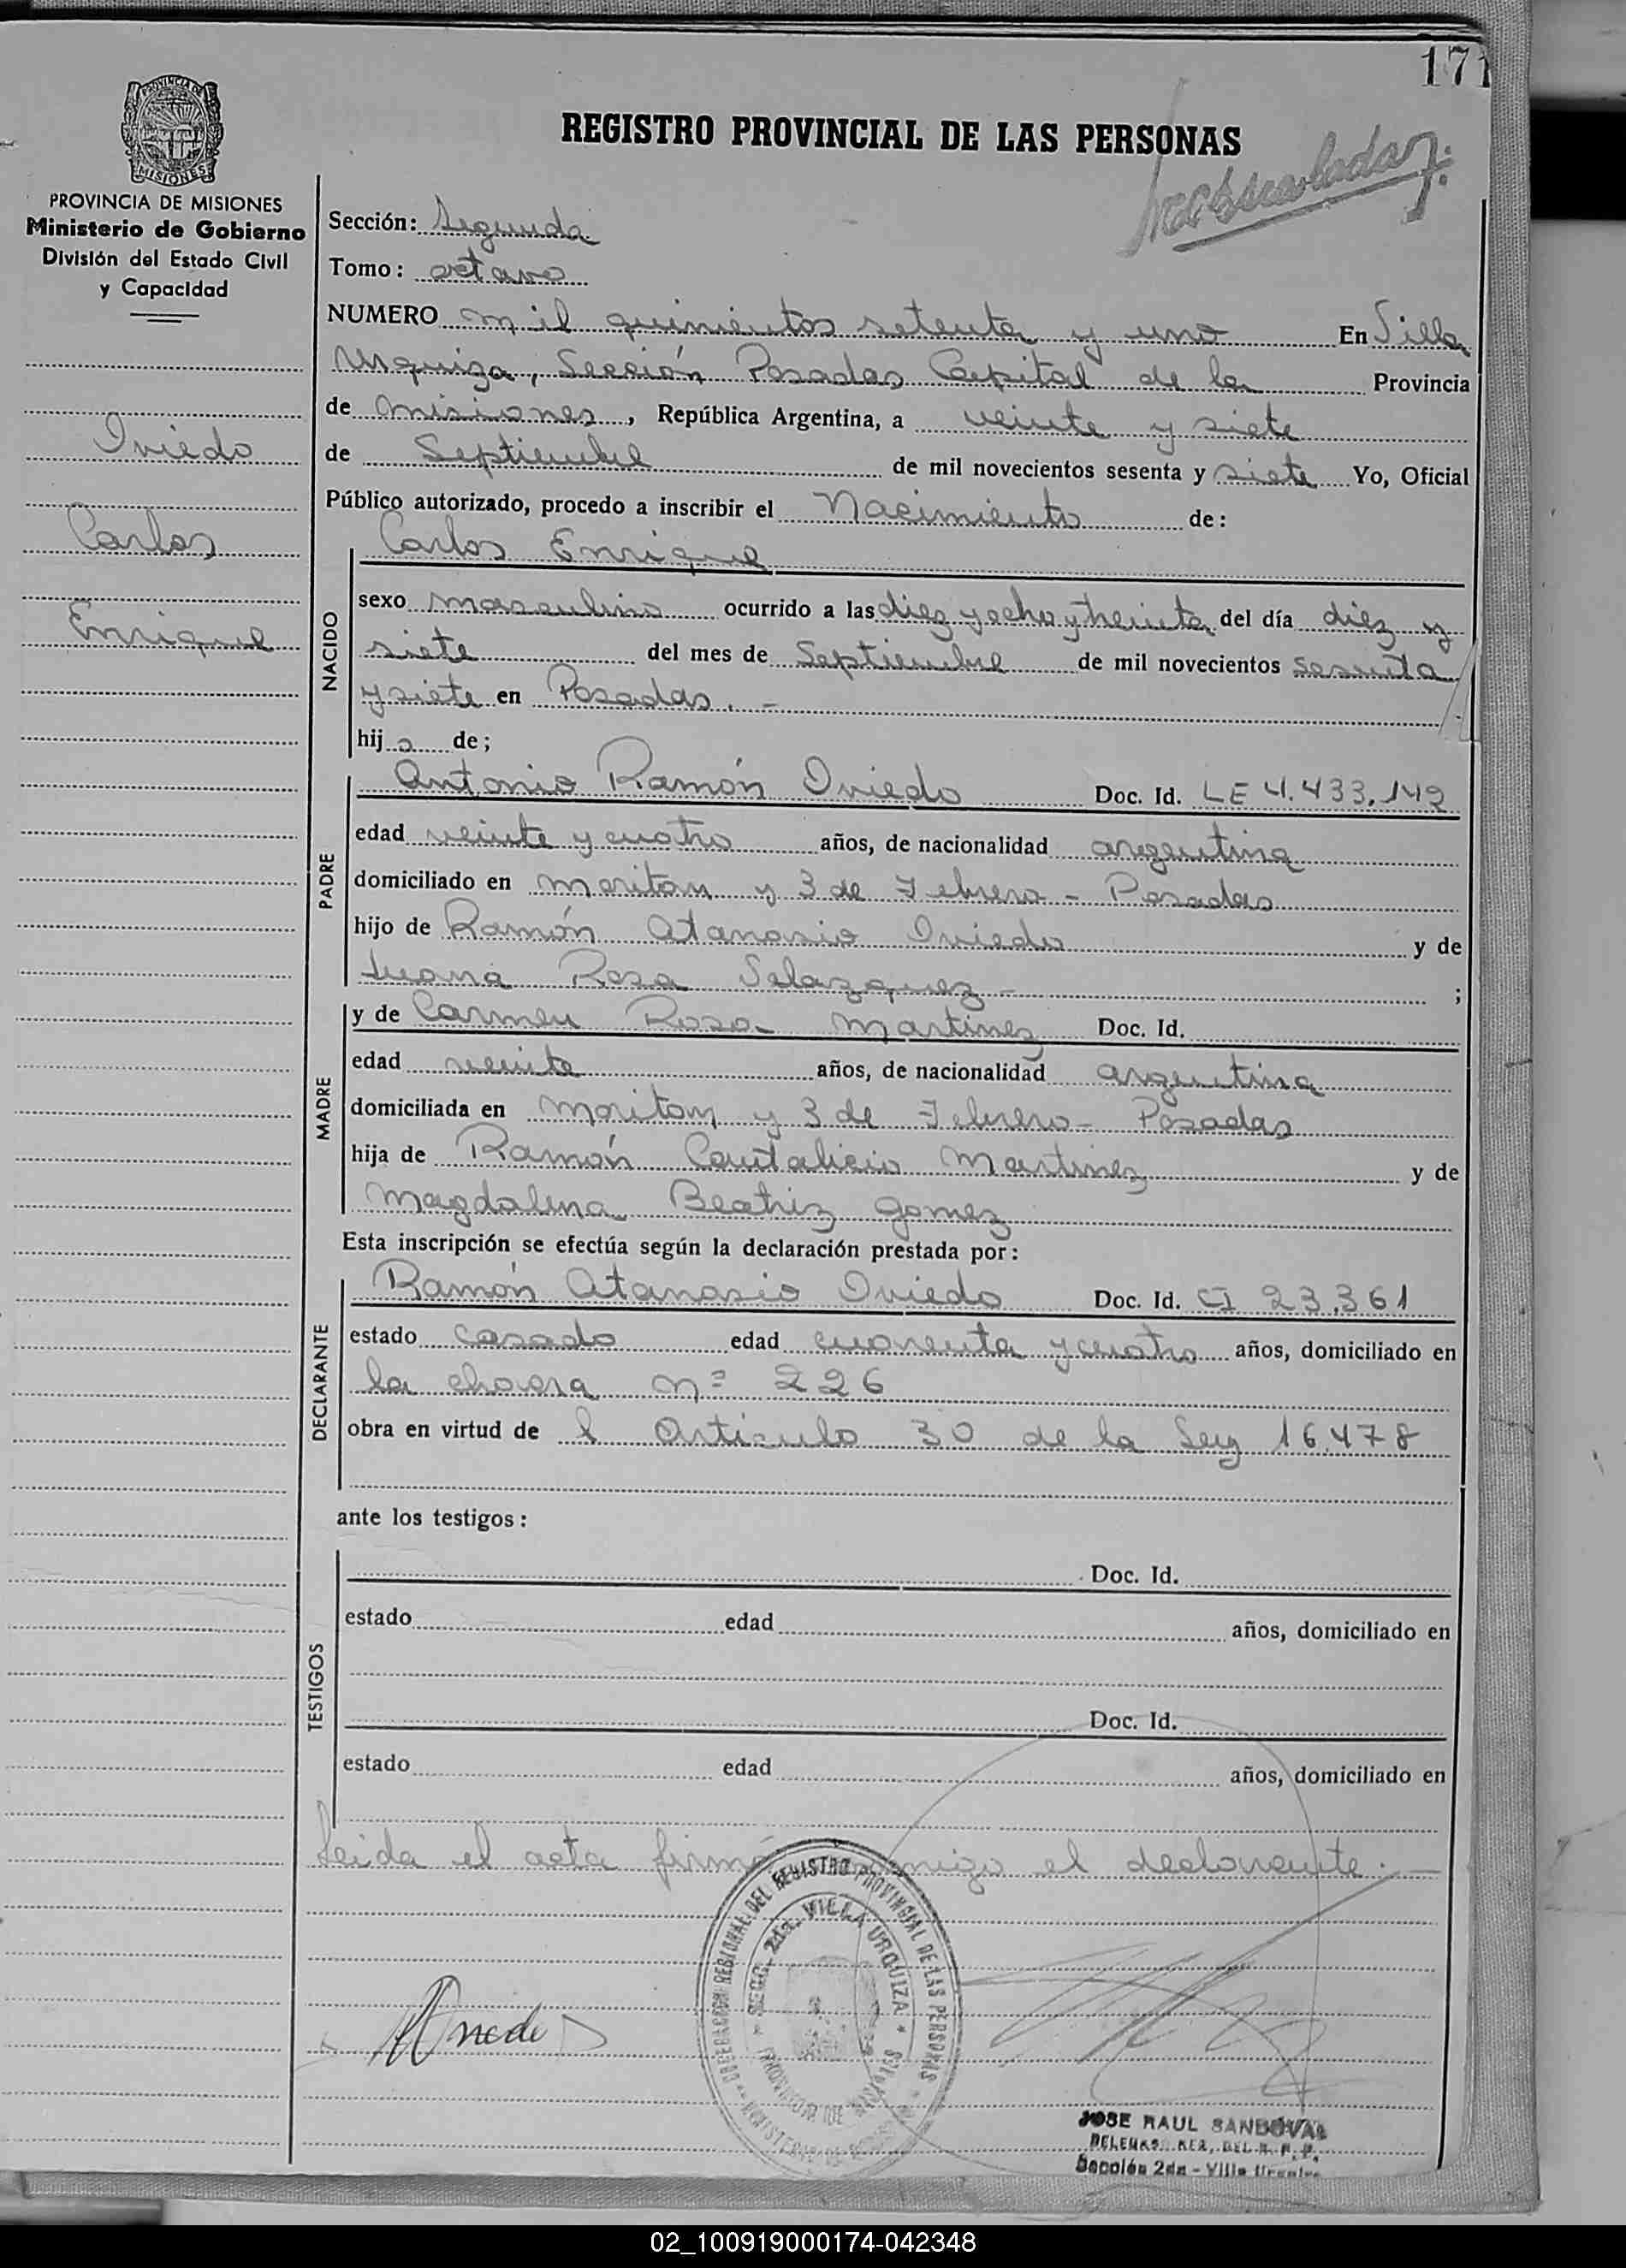 171
REGISTRO PROVINCIAL DE LAS PERSONAS
PROVINCIA DE
MISIONES
PROVINCIA DE MISIONES
Ministerio de Gobierno
División del Estado Civil
y Capacidad
Oviedo
Carlos
Enrique
Sección: Segunda
Tomo: octavo
NUMERO mil quinientos setenta y uno En Villa
Urquiza, Sección Posadas Capital de la Provincia
de Misiones, República Argentina, a veinte y siete
de Septiembre de mil novecientos sesenta y siete Yo, Oficial
Público autorizado, procedo a inscribir el Nacimiento de:
Carlos Enrique
NACIDO
sexo masculino ocurrido a las diez y ocho y treinta del día diez y
siete del mes de Septiembre de mil novecientos sesenta
y siete en Posadas. -
hijo de;
PADRE
Antonio Ramón Oviedo Doc. Id. LE 4.433.142
edad veinte y cuatro años, de nacionalidad argentina
domiciliado en Moritan y 3 de Febrero - Posadas
hijo de Ramón Atanasio Oviedo y de
Juana Rosa Velazquez - ;
MADRE
y de Carmen Rosa Martinez Doc. Id.
edad veinte años, de nacionalidad argentina
domiciliada en Moritan y 3 de Febrero - Posadas
hija de Ramón Cantalicio Martinez y de
Magdalena Beatriz Gomez
Esta inscripción se efectúa según la declaración prestada por:
DECLARANTE
Ramón Atanasio Oviedo Doc. Id. CI 23.361
estado casado edad cuarenta y cuatro años, domiciliado en
la chacra nº 226
obra en virtud de l Artículo 30 de la Ley 16.478
ante los testigos:
TESTIGOS
Doc. Id.
estado edad años, domiciliado en
Doc. Id.
estado edad años, domiciliado en
Leida el acta firmó conmigo el declarante. -
DELEGACION REGIONAL DEL REGISTRO PROVINCIAL DE LAS PERSONAS
SECC. 2da. VILLA URQUIZA
JOSE RAUL SANDOVAL
DEL R. P. P.
Sección 2da - Villa Urquiza
02_100919000174-042348